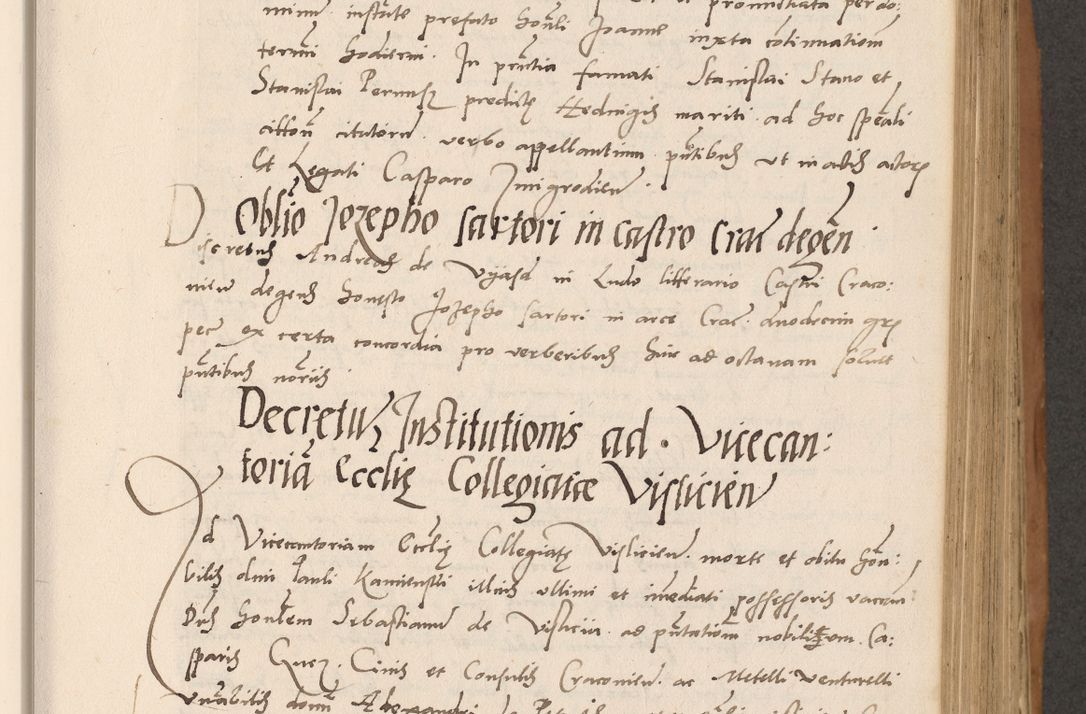 minu instate prefato honli Joanne iuxta cotinuationem
termi hodierni. In pntia famati Stanislai Stano et
Stanislai Pernusz predicte Hedvigis mariti ad hoc speali
citton citatoru verbo appellantium pntibus ut in actis actor
Et Legati Casparo Jmigrodien.
Oblio Jozepho sartori in castro Crac degen.
Discretus Andreas de Vyasd in Ludo litterario Castri Craco:
vien degens honesto Jozepho sartori in arce Crac. duodecim gr
pec ex certa concordia pro verberibus hinc ad octavam solvet
pntibus noriis.
Decretu Institutionis ad Vicecan:
toria Ecclie Collegiatae Vislicien
Ad Vicecantoriam Ecclie Collegiate Vislicien. morte et obitu hon:
bilis dni Pauli Kamienski illius ultimi et imediati possessoris vacan
Dns honlem Sebastianu de Vislicia ad pntationem nobilium Ca:
sparis Guez. Civis et Consulis Cracovien. ac Metelli Venturelli
vnabilis domi Alexandri de